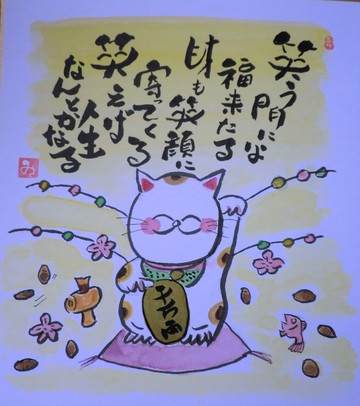 笑う門には
福来たる
財も笑顔に
寄ってくる
笑えば
人生
なんとかなる
千万両
み